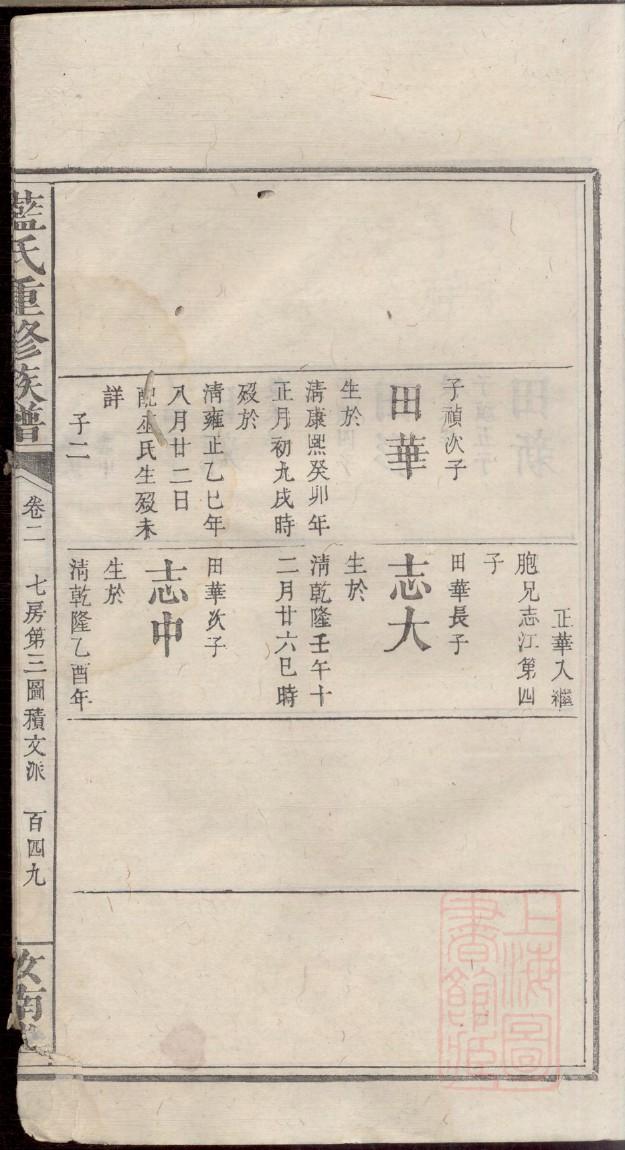 子禎次子
田華
生於
清康熙癸卯年
正月初九戌時
歿於
清雍正乙巳年
八月廿二日
配巫氏生歿未
詳
子二
正華入繼
胞兄志江第四
子
田華長子
志大
生於
清乾隆壬午十
二月廿六巳時
田華次子
志申
生於
清乾隆乙酉年
藍氏重修族譜
卷二
七房第三圖積文派
百四九
汝南堂
上海圖
書館藏